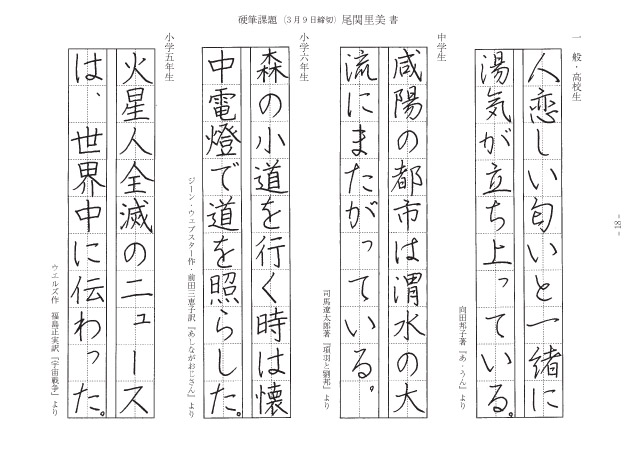 硬筆課題（3月9日締切）尾関里美 書
一般・高校生
人恋しい匂いと一緒に
湯気が立ち上っている。
向田邦子著『あ・うん』より
中学生
咸陽の都市は渭水の大
流にまたがっている。
司馬遼太郎著『項羽と劉邦』より
小学六年生
森の小道を行く時は懐
中電燈で道を照らした。
ジーン・ウェブスター作 前田三恵子訳『あしながおじさん』より
小学五年生
火星人全滅のニュース
は、世界中に伝わった。
ウエルズ作 福島正実訳『宇宙戦争』より